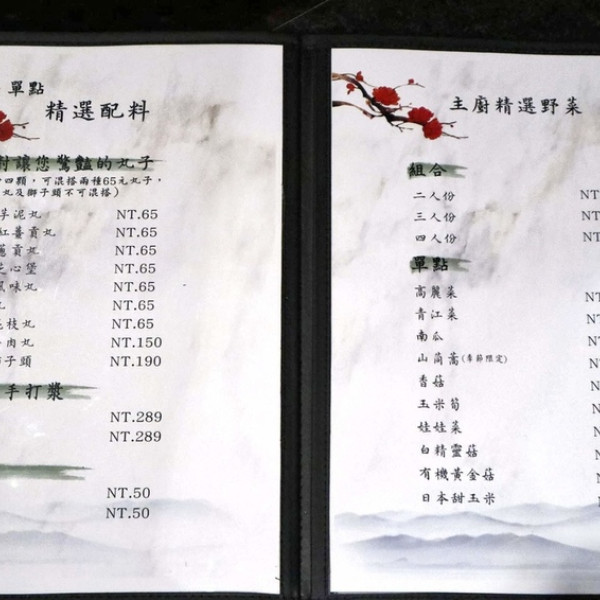 單點
精選配料
對讓您驚豔的丸子
四顆，可混搭兩種65元丸子，
丸及獅子頭不可混搭）
芋泥丸 NT.65
紅薯貢丸 NT.65
蔥貢丸 NT.65
之心堡 NT.65
風味丸 NT.65
丸 NT.65
花枝丸 NT.65
肉丸 NT.150
獅子頭 NT.190
手打漿
NT.289
NT.289
NT.50
NT.50
主廚精選野菜
組合
二人份 NT
三人份 NT
四人份 NT
單點
高麗菜 NT
青江菜 NT
南瓜 NT
山茼蒿(季節限定) N
香菇 N
玉米筍 N
娃娃菜 N
白精靈菇 N
有機黃金菇 N
日本甜玉米